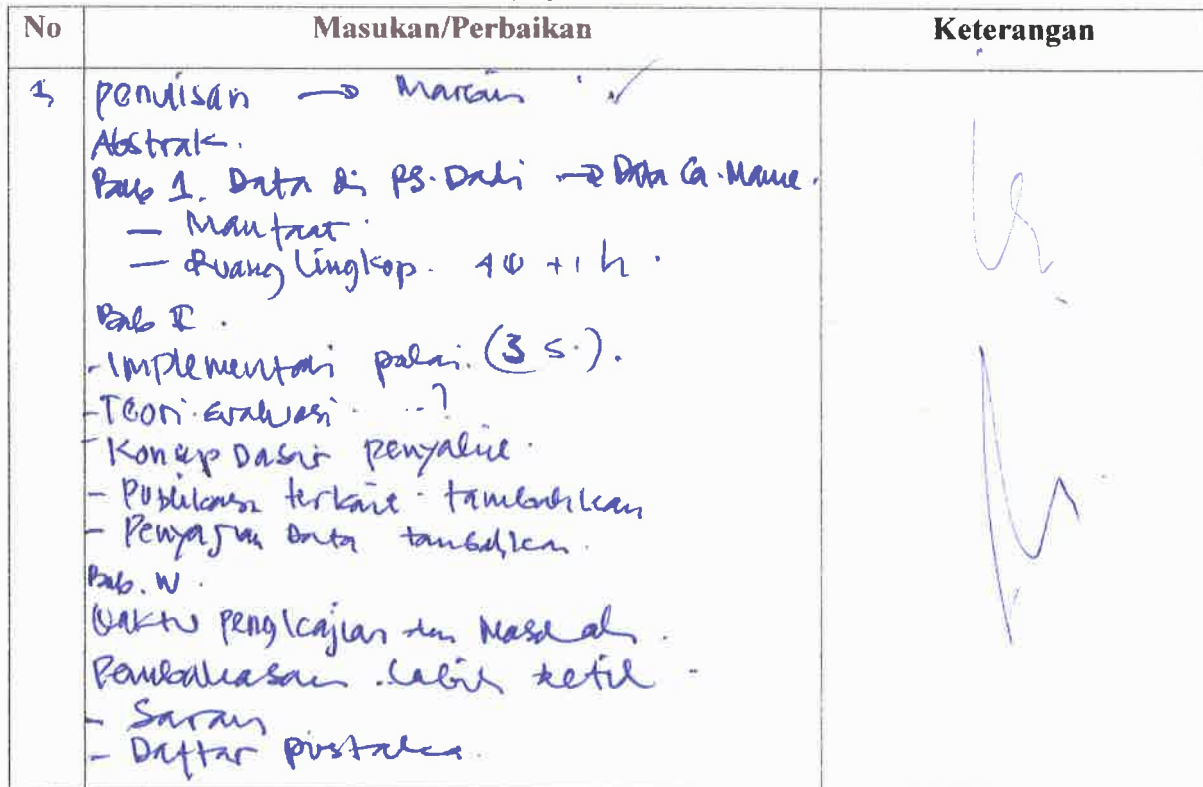 No Masukan/Perbaikan Keterangan
1, penulisan → Margin ✓
Abstrak.
Bab 1. Data di PS. Dadi → Data
- Manfaat.
- Ruang Lingkup.
Bab II.
- Implementasi (3 S.).
- Teori evaluasi ...?
- Konsep Dasar penyakit.
- Publikasi terkait tambahkan
- Penyajian Data tambahkan.
Bab. IV.
Waktu pengkajian dan Masalah.
Pembahasan lebih
- Saran
- Daftar pustaka.